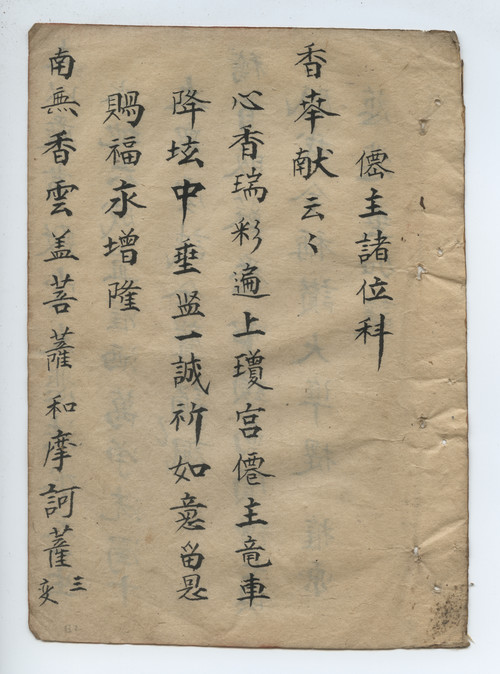 僊主諸位科
香奉献云〻
心香瑞彩遍上瓊宮僊主竜車
降坛中垂监一誠祈如意留恩
賜福永增隆
南無香雲盖菩薩和摩訶薩三变